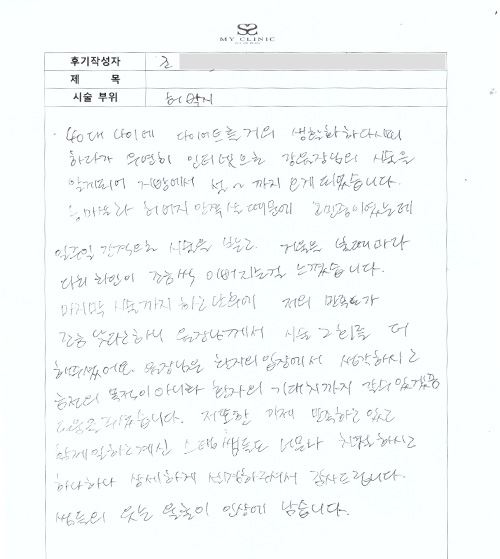 MY CLINIC
후기작성자 조
제 목
시술 부위 허벅지
40대 나이에 다이어트를 거의 생활화하다시피
하다가 우연히 인터넷으로 강원장님의 시술을
알게되어 지방에서 서울까지 오게되었습니다.
허벅지 안쪽살때문에 고민중이었는데
일주일 간격으로 시술을 받고 거울을 볼때마다
다리 라인이 조금씩 이뻐지는걸 느꼈습니다.
마지막 시술까지 하고난후에 저의 만족도가
조금 낮다고하니 원장님께서 시술 2회를 더
해주셨어요. 원장님은 환자의 입장에서 생각하시고
금전의 목적이 아니라 환자의 기대치까지
도움을 주셨습니다. 저또한 지금 만족하고 있고
함께 일하고계신 스텝쌤들도 너무나 친절하시고
하나하나 상세하게 설명해주셔서 감사드립니다.
쌤들의 웃는 얼굴이 인상에 남습니다.